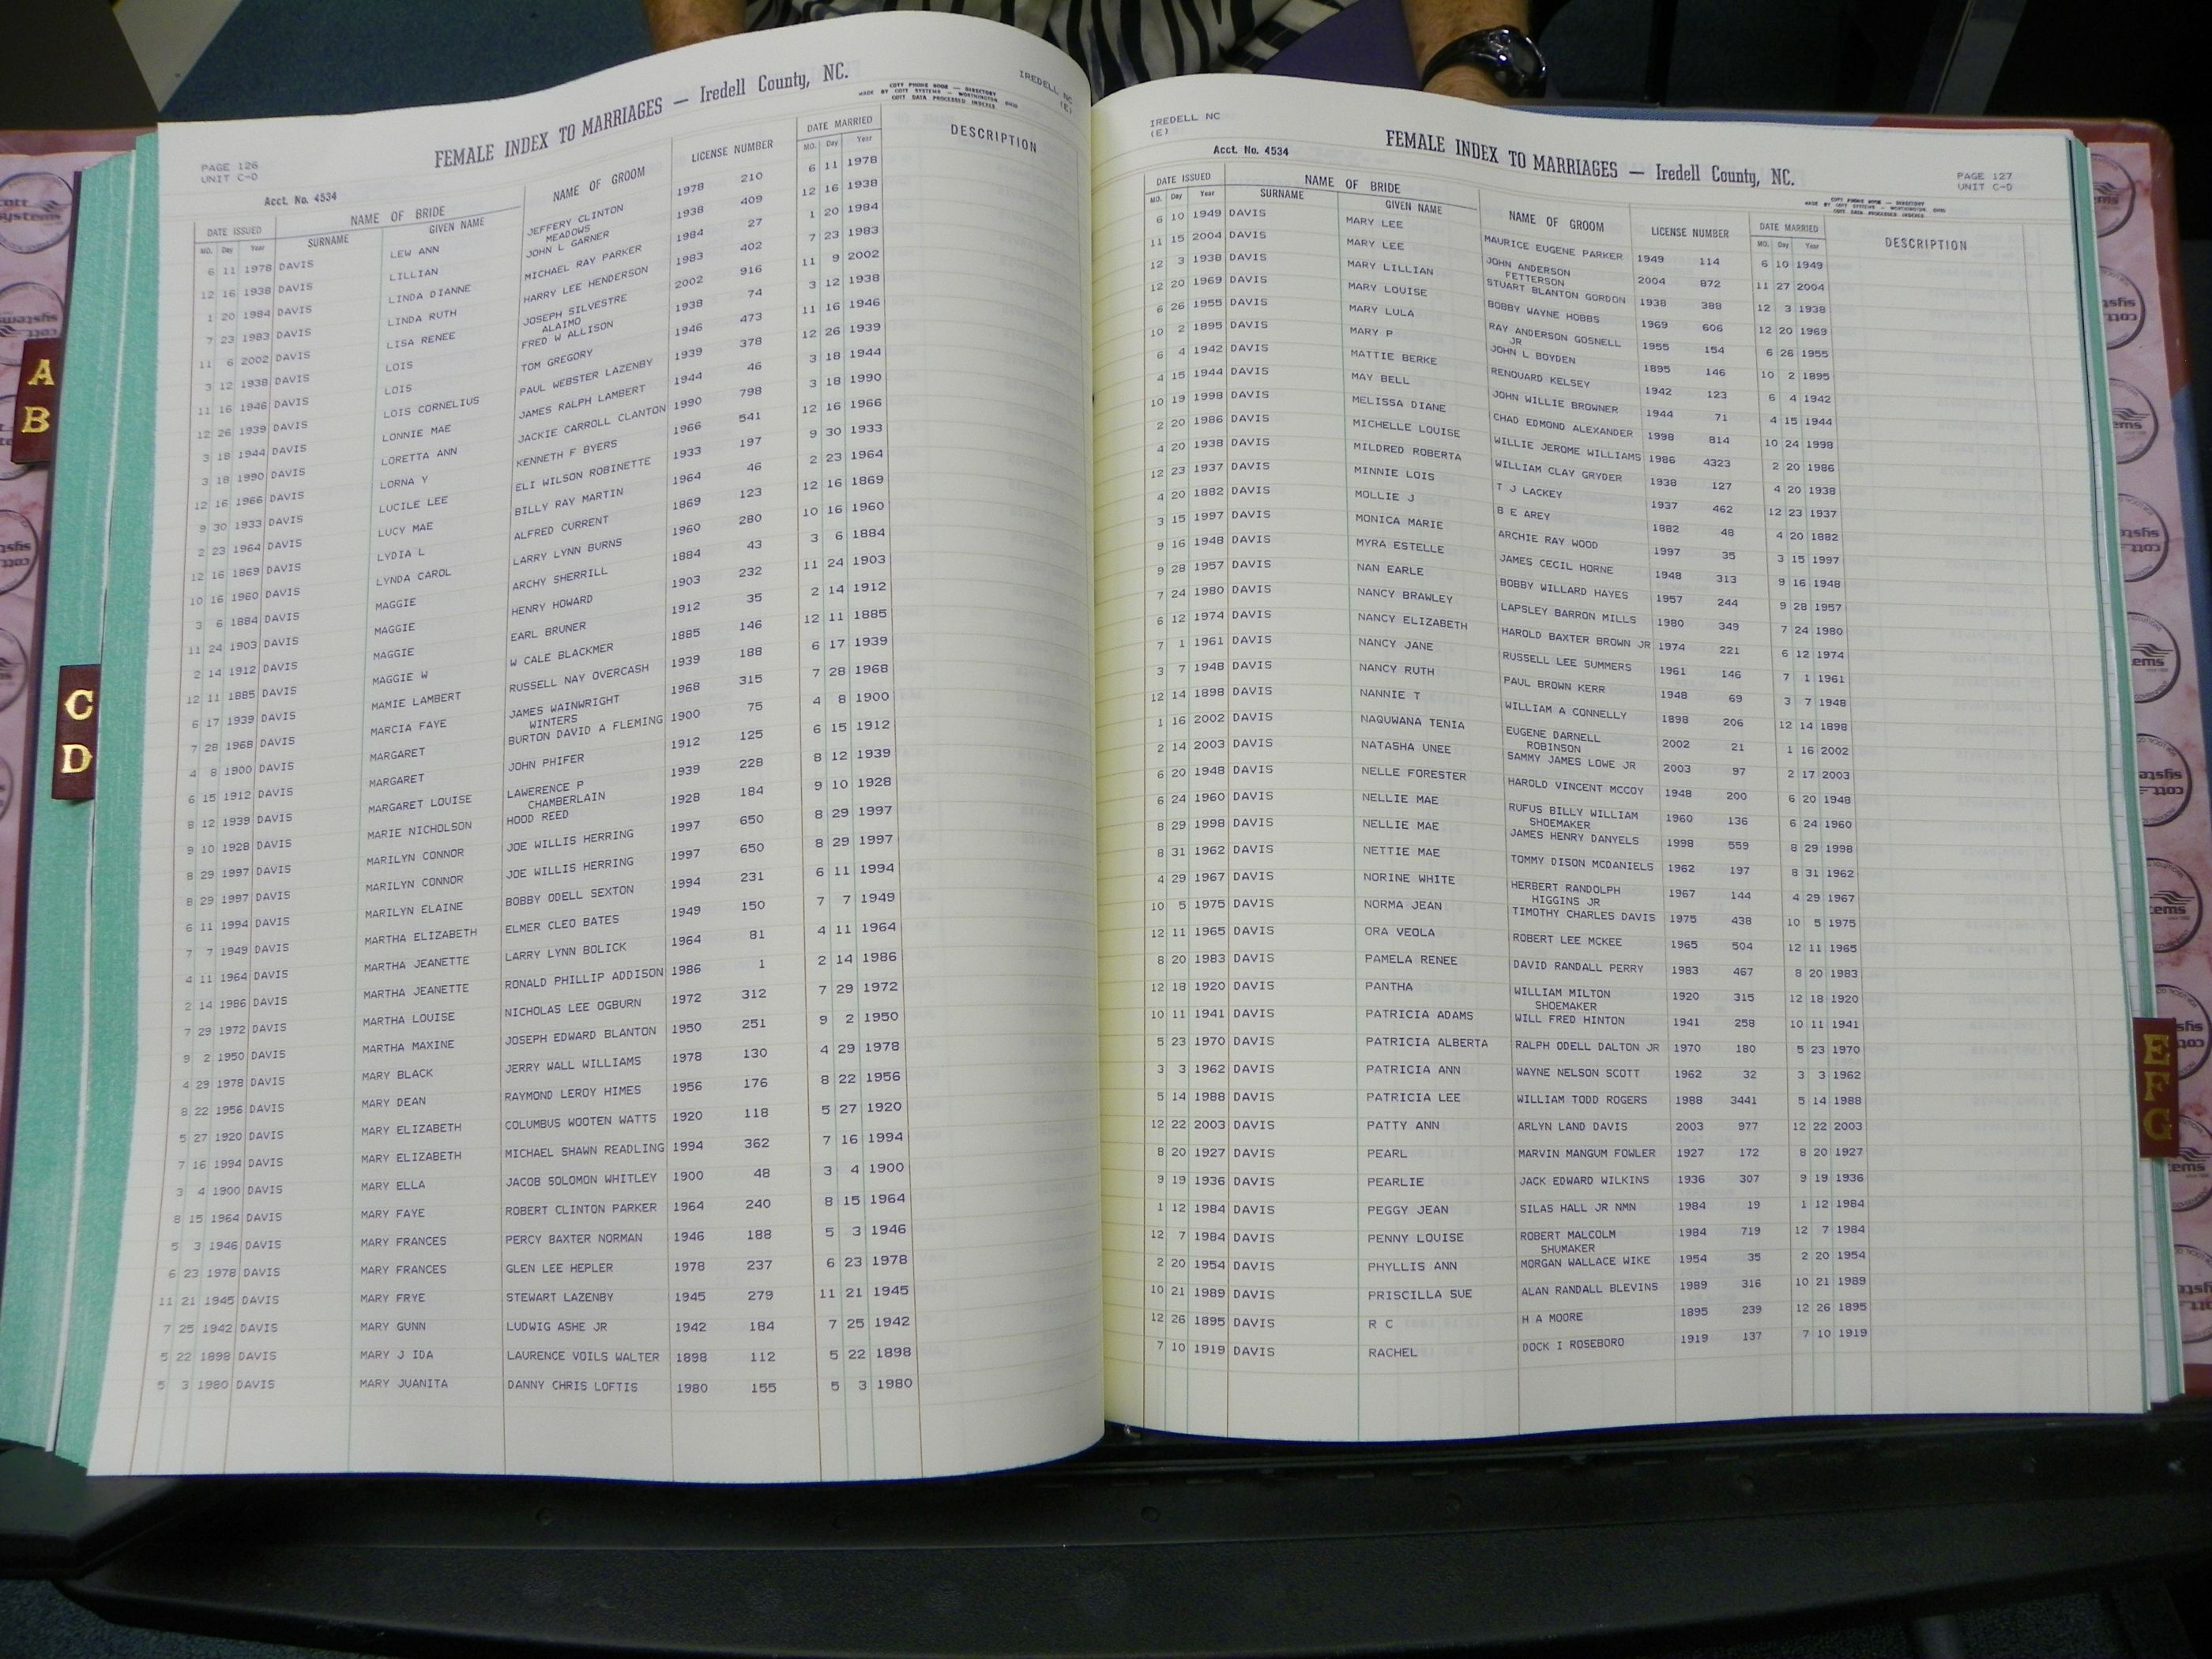 IREDELL NC
(E)
PAGE 126
UNIT C-D
FEMALE INDEX TO MARRIAGES — Iredell County, NC.
COTT PHONE BOOK — DIRECTORY
MADE BY COTT SYSTEMS — WORTHINGTON OHIO
COTT DATA PROCESSED INDEXES
Acct. No. 4534
DATE ISSUED NAME OF BRIDE NAME OF GROOM LICENSE NUMBER DATE MARRIED DESCRIPTION
MO. Day Year SURNAME GIVEN NAME MO. Day Year
6 11 1978 DAVIS LEW ANN JEFFERY CLINTON 1978 210 6 11 1978
MEADOWS
12 16 1938 DAVIS LILLIAN JOHN L GARNER 1938 409 12 16 1938
1 20 1984 DAVIS LINDA DIANNE MICHAEL RAY PARKER 1984 27 1 20 1984
7 23 1983 DAVIS LINDA RUTH HARRY LEE HENDERSON 1983 402 7 23 1983
11 6 2002 DAVIS LISA RENEE JOSEPH SILVESTRE 2002 916 11 9 2002
ALAIMO
3 12 1938 DAVIS LOIS FRED W ALLISON 1938 74 3 12 1938
11 16 1946 DAVIS LOIS TOM GREGORY 1946 473 11 16 1946
12 26 1939 DAVIS LOIS CORNELIUS PAUL WEBSTER LAZENBY 1939 378 12 26 1939
3 18 1944 DAVIS LONNIE MAE JAMES RALPH LAMBERT 1944 46 3 18 1944
3 18 1990 DAVIS LORETTA ANN JACKIE CARROLL CLANTON 1990 798 3 18 1990
12 16 1966 DAVIS LORNA Y KENNETH F BYERS 1966 541 12 16 1966
9 30 1933 DAVIS LUCILE LEE ELI WILSON ROBINETTE 1933 197 9 30 1933
2 23 1964 DAVIS LUCY MAE BILLY RAY MARTIN 1964 46 2 23 1964
12 16 1869 DAVIS LYDIA L ALFRED CURRENT 1869 123 12 16 1869
10 16 1960 DAVIS LYNDA CAROL LARRY LYNN BURNS 1960 280 10 16 1960
3 6 1884 DAVIS MAGGIE ARCHY SHERRILL 1884 43 3 6 1884
11 24 1903 DAVIS MAGGIE HENRY HOWARD 1903 232 11 24 1903
2 14 1912 DAVIS MAGGIE EARL BRUNER 1912 35 2 14 1912
12 11 1885 DAVIS MAGGIE W W CALE BLACKMER 1885 146 12 11 1885
6 17 1939 DAVIS MAMIE LAMBERT RUSSELL NAY OVERCASH 1939 188 6 17 1939
7 28 1968 DAVIS MARCIA FAYE JAMES WAINWRIGHT 1968 315 7 28 1968
WINTERS
4 8 1900 DAVIS MARGARET BURTON DAVID A FLEMING 1900 75 4 8 1900
6 15 1912 DAVIS MARGARET JOHN PHIFER 1912 125 6 15 1912
8 12 1939 DAVIS MARGARET LOUISE LAWERENCE P 1939 228 8 12 1939
CHAMBERLAIN
9 10 1928 DAVIS MARIE NICHOLSON HOOD REED 1928 184 9 10 1928
8 29 1997 DAVIS MARILYN CONNOR JOE WILLIS HERRING 1997 650 8 29 1997
8 29 1997 DAVIS MARILYN CONNOR JOE WILLIS HERRING 1997 650 8 29 1997
6 11 1994 DAVIS MARILYN ELAINE BOBBY ODELL SEXTON 1994 231 6 11 1994
7 7 1949 DAVIS MARTHA ELIZABETH ELMER CLEO BATES 1949 150 7 7 1949
4 11 1964 DAVIS MARTHA JEANETTE LARRY LYNN BOLICK 1964 81 4 11 1964
2 14 1986 DAVIS MARTHA JEANETTE RONALD PHILLIP ADDISON 1986 1 2 14 1986
7 29 1972 DAVIS MARTHA LOUISE NICHOLAS LEE OGBURN 1972 312 7 29 1972
9 2 1950 DAVIS MARTHA MAXINE JOSEPH EDWARD BLANTON 1950 251 9 2 1950
4 29 1978 DAVIS MARY BLACK JERRY WALL WILLIAMS 1978 130 4 29 1978
8 22 1956 DAVIS MARY DEAN RAYMOND LEROY HIMES 1956 176 8 22 1956
5 27 1920 DAVIS MARY ELIZABETH COLUMBUS WOOTEN WATTS 1920 118 5 27 1920
7 16 1994 DAVIS MARY ELIZABETH MICHAEL SHAWN READLING 1994 362 7 16 1994
3 4 1900 DAVIS MARY ELLA JACOB SOLOMON WHITLEY 1900 48 3 4 1900
8 15 1964 DAVIS MARY FAYE ROBERT CLINTON PARKER 1964 240 8 15 1964
5 3 1946 DAVIS MARY FRANCES PERCY BAXTER NORMAN 1946 188 5 3 1946
6 23 1978 DAVIS MARY FRANCES GLEN LEE HEPLER 1978 237 6 23 1978
11 21 1945 DAVIS MARY FRYE STEWART LAZENBY 1945 279 11 21 1945
7 25 1942 DAVIS MARY GUNN LUDWIG ASHE JR 1942 184 7 25 1942
5 22 1898 DAVIS MARY J IDA LAURENCE VOILS WALTER 1898 112 5 22 1898
5 3 1980 DAVIS MARY JUANITA DANNY CHRIS LOFTIS 1980 155 5 3 1980
IREDELL NC
(E)
PAGE 127
UNIT C-D
FEMALE INDEX TO MARRIAGES — Iredell County, NC.
COTT PHONE BOOK — DIRECTORY
MADE BY COTT SYSTEMS — WORTHINGTON OHIO
COTT DATA PROCESSED INDEXES
Acct. No. 4534
DATE ISSUED NAME OF BRIDE NAME OF GROOM LICENSE NUMBER DATE MARRIED DESCRIPTION
MO. Day Year SURNAME GIVEN NAME MO. Day Year
6 10 1949 DAVIS MARY LEE MAURICE EUGENE PARKER 1949 114 6 10 1949
11 15 2004 DAVIS MARY LEE JOHN ANDERSON 2004 872 11 27 2004
FETTERSON
12 3 1938 DAVIS MARY LILLIAN STUART BLANTON GORDON 1938 388 12 3 1938
12 20 1969 DAVIS MARY LOUISE BOBBY WAYNE HOBBS 1969 606 12 20 1969
6 26 1955 DAVIS MARY LULA RAY ANDERSON GOSNELL 1955 154 6 26 1955
JR
10 2 1895 DAVIS MARY P JOHN L BOYDEN 1895 146 10 2 1895
6 4 1942 DAVIS MATTIE BERKE RENOUARD KELSEY 1942 123 6 4 1942
4 15 1944 DAVIS MAY BELL JOHN WILLIE BROWNER 1944 71 4 15 1944
10 19 1998 DAVIS MELISSA DIANE CHAD EDMOND ALEXANDER 1998 814 10 24 1998
2 20 1986 DAVIS MICHELLE LOUISE WILLIE JEROME WILLIAMS 1986 4323 2 20 1986
4 20 1938 DAVIS MILDRED ROBERTA WILLIAM CLAY GRYDER 1938 127 4 20 1938
12 23 1937 DAVIS MINNIE LOIS T J LACKEY 1937 462 12 23 1937
4 20 1882 DAVIS MOLLIE J B E AREY 1882 48 4 20 1882
3 15 1997 DAVIS MONICA MARIE ARCHIE RAY WOOD 1997 35 3 15 1997
9 16 1948 DAVIS MYRA ESTELLE JAMES CECIL HORNE 1948 313 9 16 1948
9 28 1957 DAVIS NAN EARLE BOBBY WILLARD HAYES 1957 244 9 28 1957
7 24 1980 DAVIS NANCY BRAWLEY LAPSLEY BARRON MILLS 1980 349 7 24 1980
6 12 1974 DAVIS NANCY ELIZABETH HAROLD BAXTER BROWN JR 1974 221 6 12 1974
7 1 1961 DAVIS NANCY JANE RUSSELL LEE SUMMERS 1961 146 7 1 1961
3 7 1948 DAVIS NANCY RUTH PAUL BROWN KERR 1948 69 3 7 1948
12 14 1898 DAVIS NANNIE T WILLIAM A CONNELLY 1898 206 12 14 1898
1 16 2002 DAVIS NAQUWANA TENIA EUGENE DARNELL 2002 21 1 16 2002
ROBINSON
2 14 2003 DAVIS NATASHA UNEE SAMMY JAMES LOWE JR 2003 97 2 17 2003
6 20 1948 DAVIS NELLE FORESTER HAROLD VINCENT MCCOY 1948 200 6 20 1948
6 24 1960 DAVIS NELLIE MAE RUFUS BILLY WILLIAM 1960 136 6 24 1960
SHOEMAKER
8 29 1998 DAVIS NELLIE MAE JAMES HENRY DANYELS 1998 559 8 29 1998
8 31 1962 DAVIS NETTIE MAE TOMMY DISON MCDANIELS 1962 197 8 31 1962
4 29 1967 DAVIS NORINE WHITE HERBERT RANDOLPH 1967 144 4 29 1967
HIGGINS JR
10 5 1975 DAVIS NORMA JEAN TIMOTHY CHARLES DAVIS 1975 438 10 5 1975
12 11 1965 DAVIS ORA VEOLA ROBERT LEE MCKEE 1965 504 12 11 1965
8 20 1983 DAVIS PAMELA RENEE DAVID RANDALL PERRY 1983 467 8 20 1983
12 18 1920 DAVIS PANTHA WILLIAM MILTON 1920 315 12 18 1920
SHOEMAKER
10 11 1941 DAVIS PATRICIA ADAMS WILL FRED HINTON 1941 258 10 11 1941
5 23 1970 DAVIS PATRICIA ALBERTA RALPH ODELL DALTON JR 1970 180 5 23 1970
3 3 1962 DAVIS PATRICIA ANN WAYNE NELSON SCOTT 1962 32 3 3 1962
5 14 1988 DAVIS PATRICIA LEE WILLIAM TODD ROGERS 1988 3441 5 14 1988
12 22 2003 DAVIS PATTY ANN ARLYN LAND DAVIS 2003 977 12 22 2003
8 20 1927 DAVIS PEARL MARVIN MANGUM FOWLER 1927 172 8 20 1927
9 19 1936 DAVIS PEARLIE JACK EDWARD WILKINS 1936 307 9 19 1936
1 12 1984 DAVIS PEGGY JEAN SILAS HALL JR NMN 1984 19 1 12 1984
12 7 1984 DAVIS PENNY LOUISE ROBERT MALCOLM 1984 719 12 7 1984
SHUMAKER
2 20 1954 DAVIS PHYLLIS ANN MORGAN WALLACE WIKE 1954 35 2 20 1954
10 21 1989 DAVIS PRISCILLA SUE ALAN RANDALL BLEVINS 1989 316 10 21 1989
12 26 1895 DAVIS R C H A MOORE 1895 239 12 26 1895
7 10 1919 DAVIS RACHEL DOCK I ROSEBORO 1919 137 7 10 1919
A
B
C
D
E
F
G